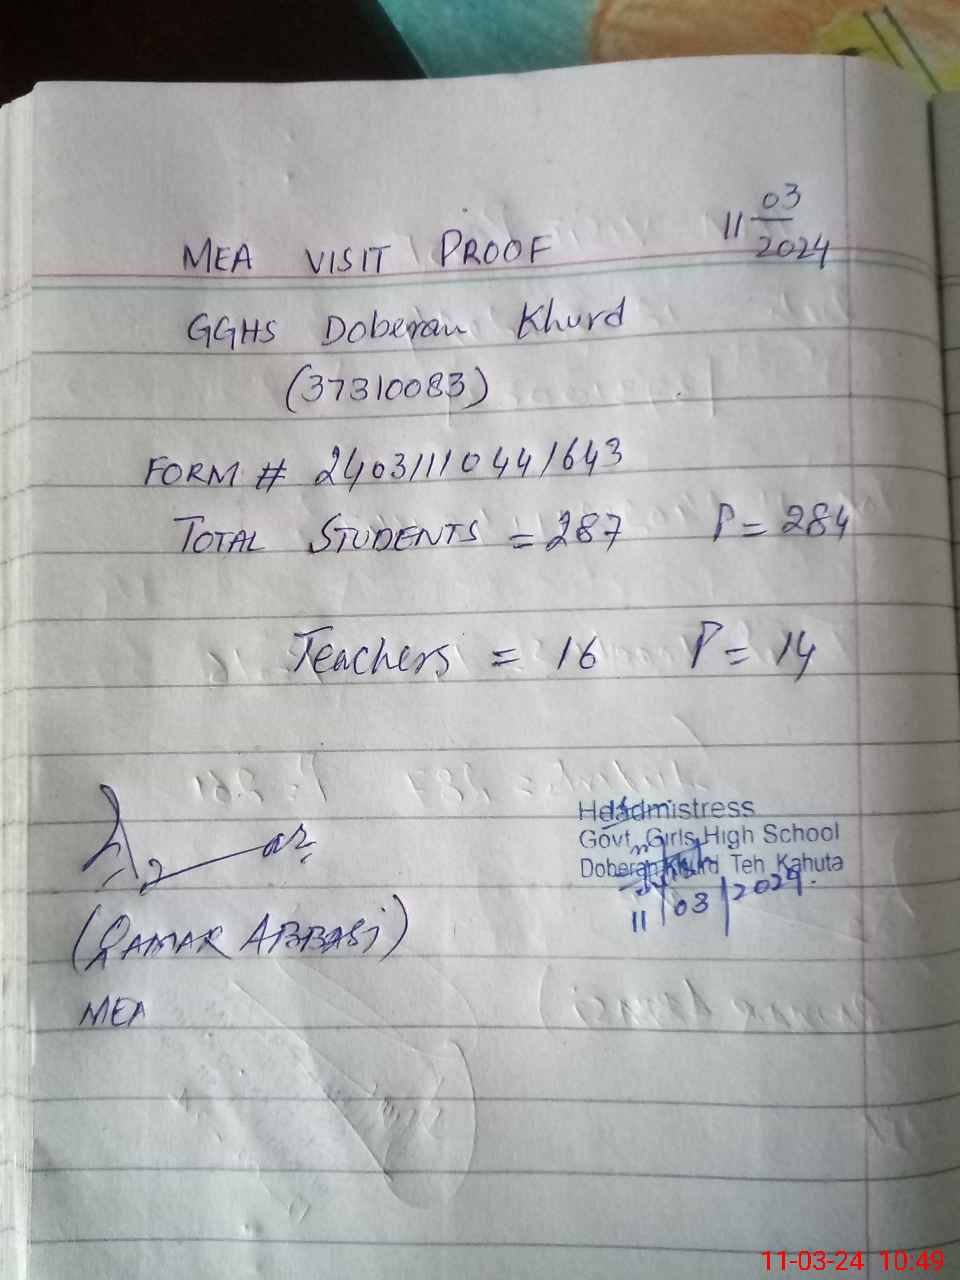 11 03/2024
MEA VISIT PROOF
GGHS Doberan Khurd
(37310083)
FORM # 2403111044 1643
TOTAL STUDENTS = 287 P = 284
Teachers = 16 P = 14
Headmistress
Govt. Girls High School
Doberan Khurd Teh Kahuta
11/03/2024.
(QAMAR ABBASI)
MEA
11-03-24 10:49